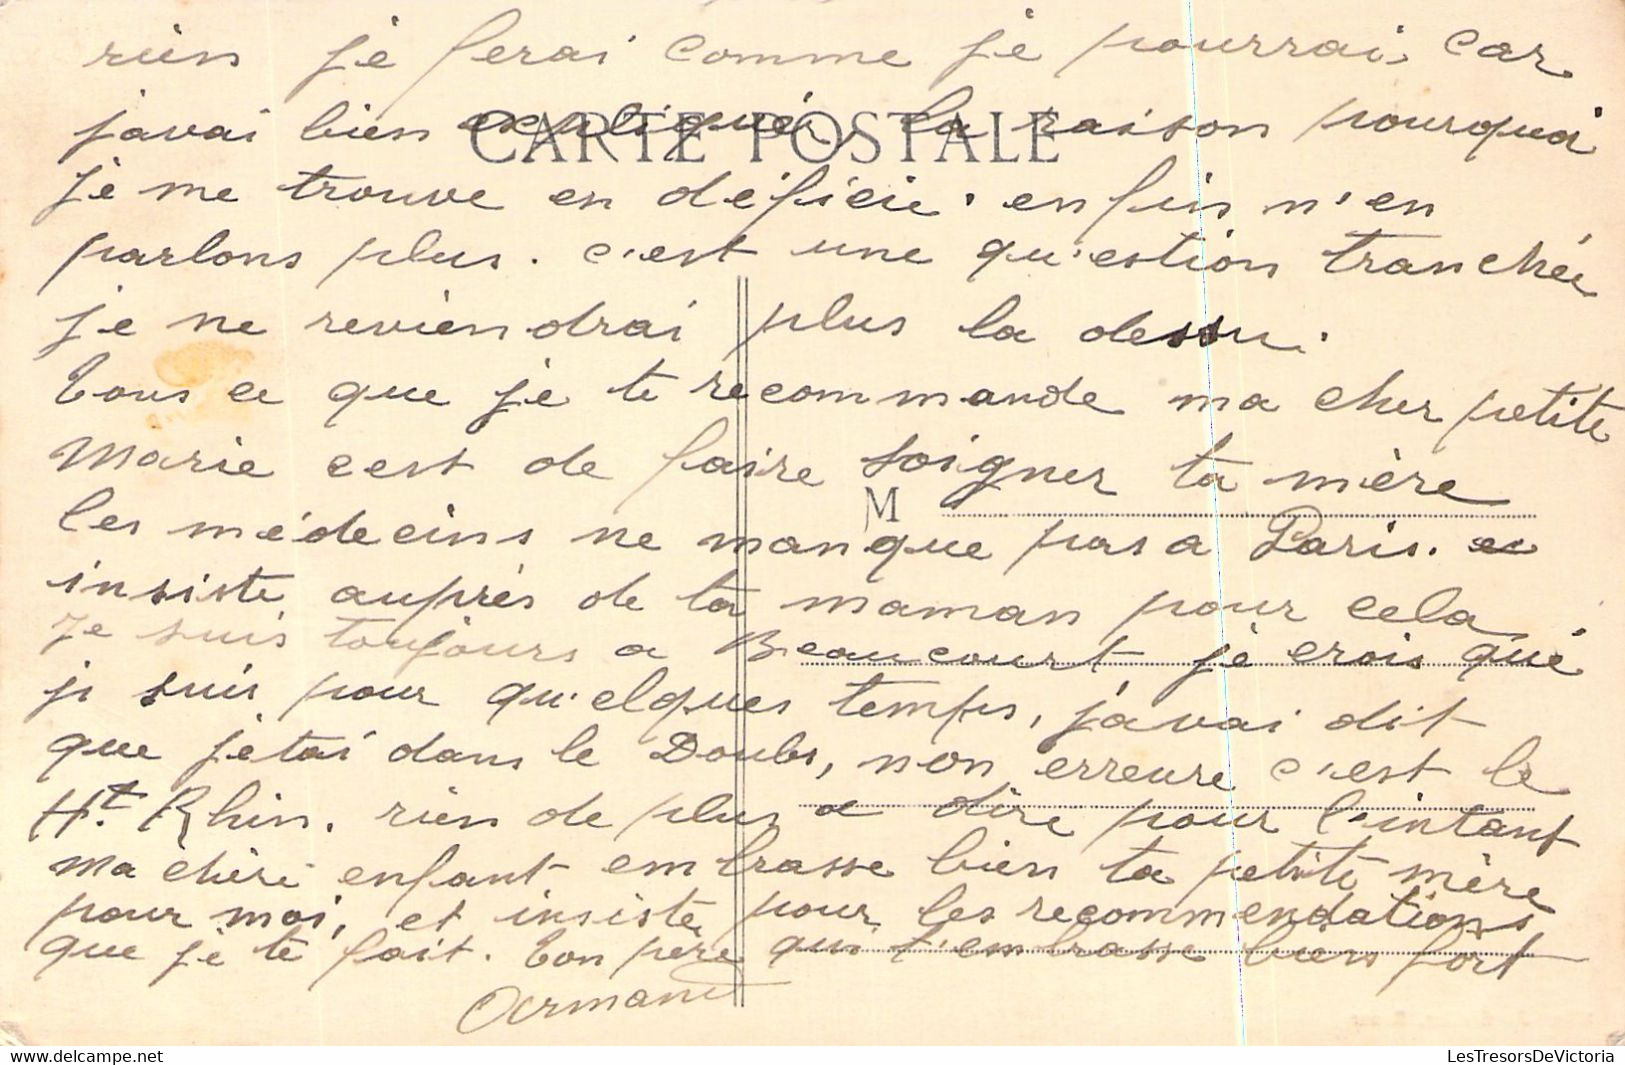 rien je ferai comme je pourrai, car
javai bien expliquér, la raison pourquoi
CARTE POSTALE
je me trouve en déficie. enfin n'en
parlons plus. c'est une qu'estion tranchée
je ne reviendrai plus la dessu.
Tous ce que je te recommande ma cher petite
Marie cest de faire soigner ta mère
M
les médecins ne manque pas a Paris. et
insiste auprès de ta maman pour cela,
Je suis toujours a Beaucourt, je crois que
je suis pour qu'elques temps, j'avai dit
que jetai dans le Doubs, non erreure c'est le
Ht. Rhin. rien de plus a dire pour l'intant
ma chèri enfant embrasse bien ta petite mère
pour moi, et insiste pour les recommendations
que je te fait. Ton père qui t'embrasse biens fort
Armand
LesTresorsDeVictoria